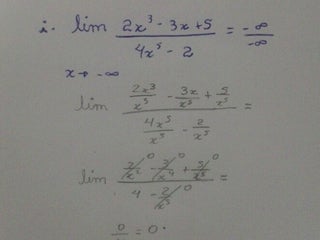 i. lim (2x³ - 3x + 5)/(4x⁵ - 2) = -∞/-∞
x→ -∞
lim (2x³/x⁵ - 3x/x⁵ + 5/x⁵)/(4x⁵/x⁵ - 2/x⁵) =
lim (2/x² ⁰ - 3/x⁴ ⁰ + 5/x⁵ ⁰)/(4 - 2/x⁵ ⁰) =
0/ = 0.